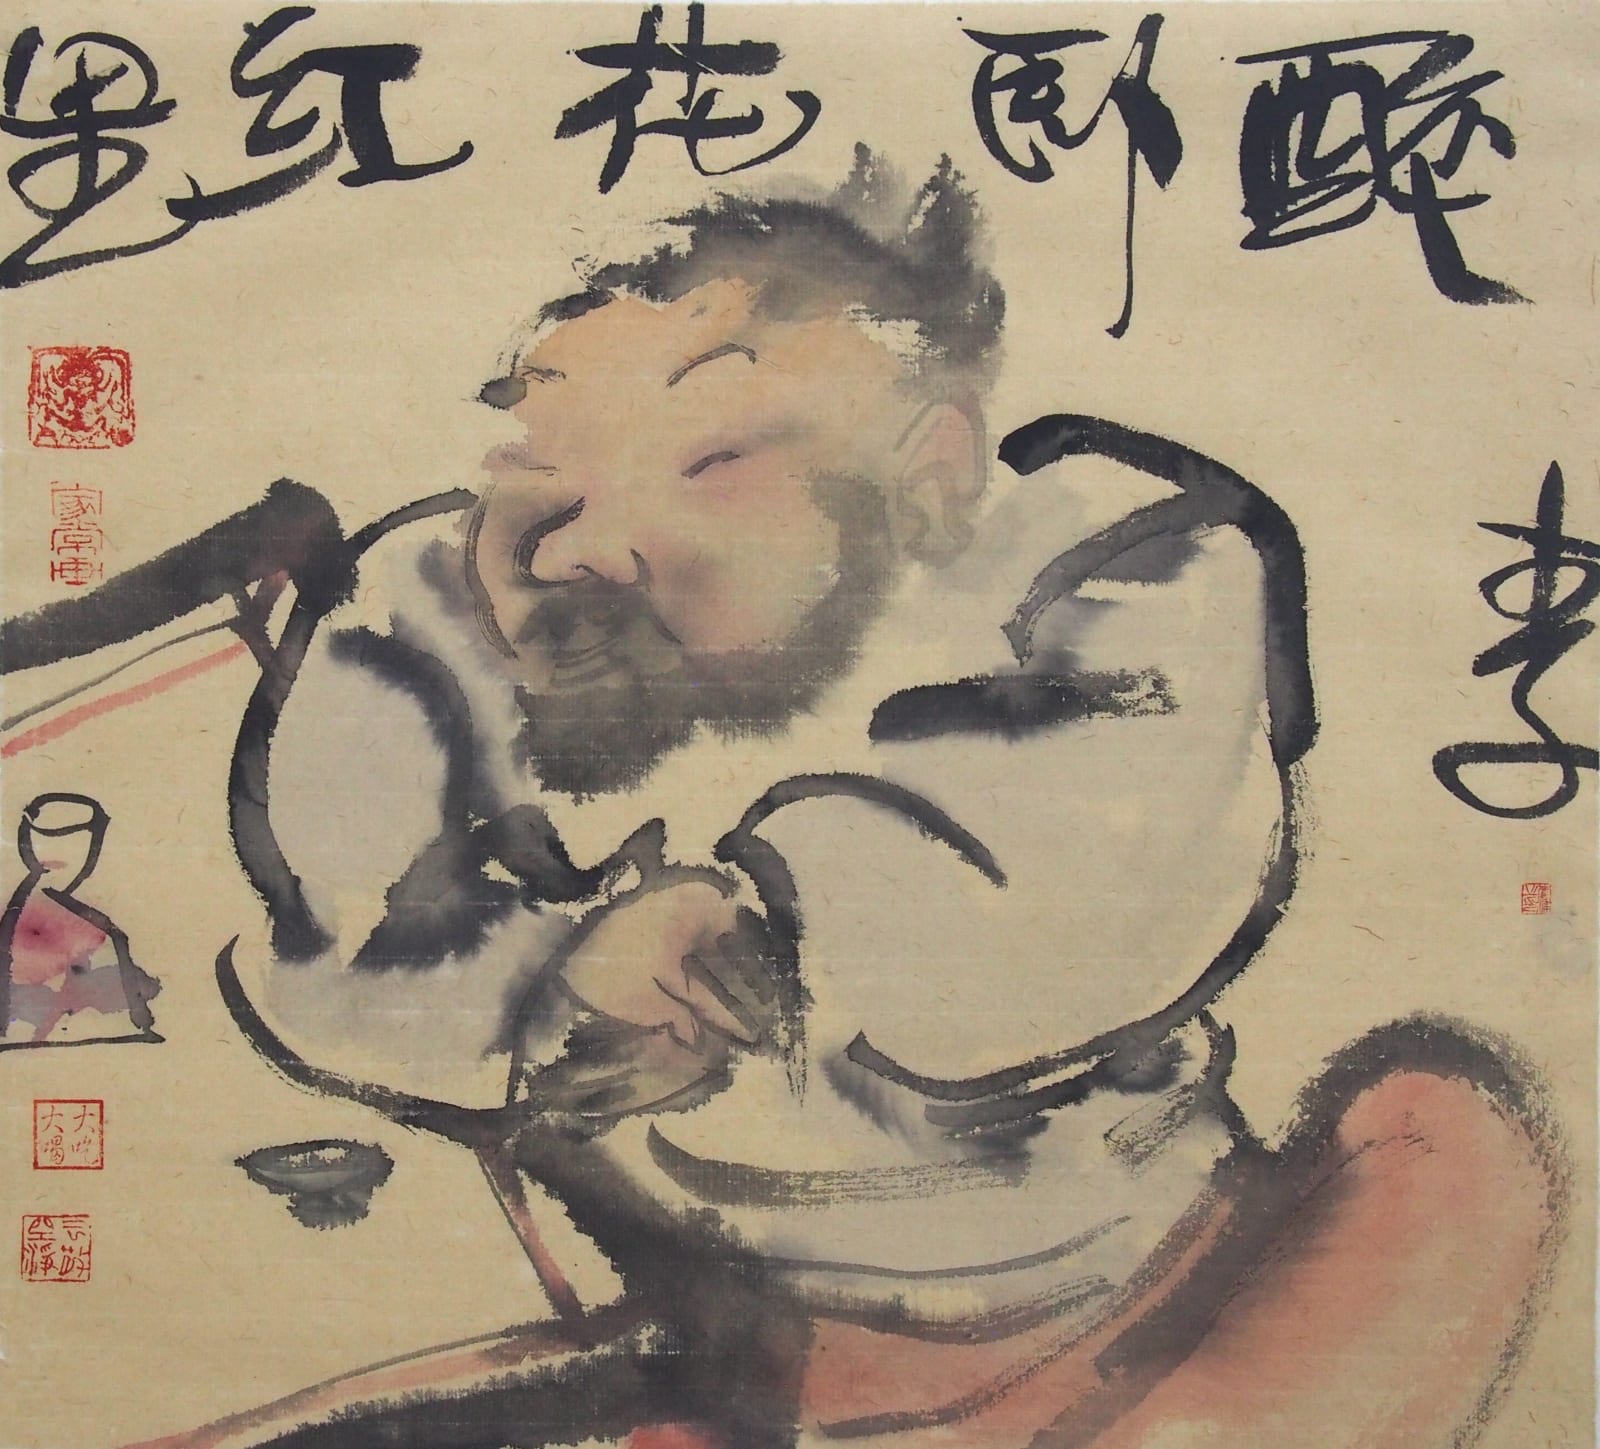 醉卧花红里
李
家常画
大吃大喝